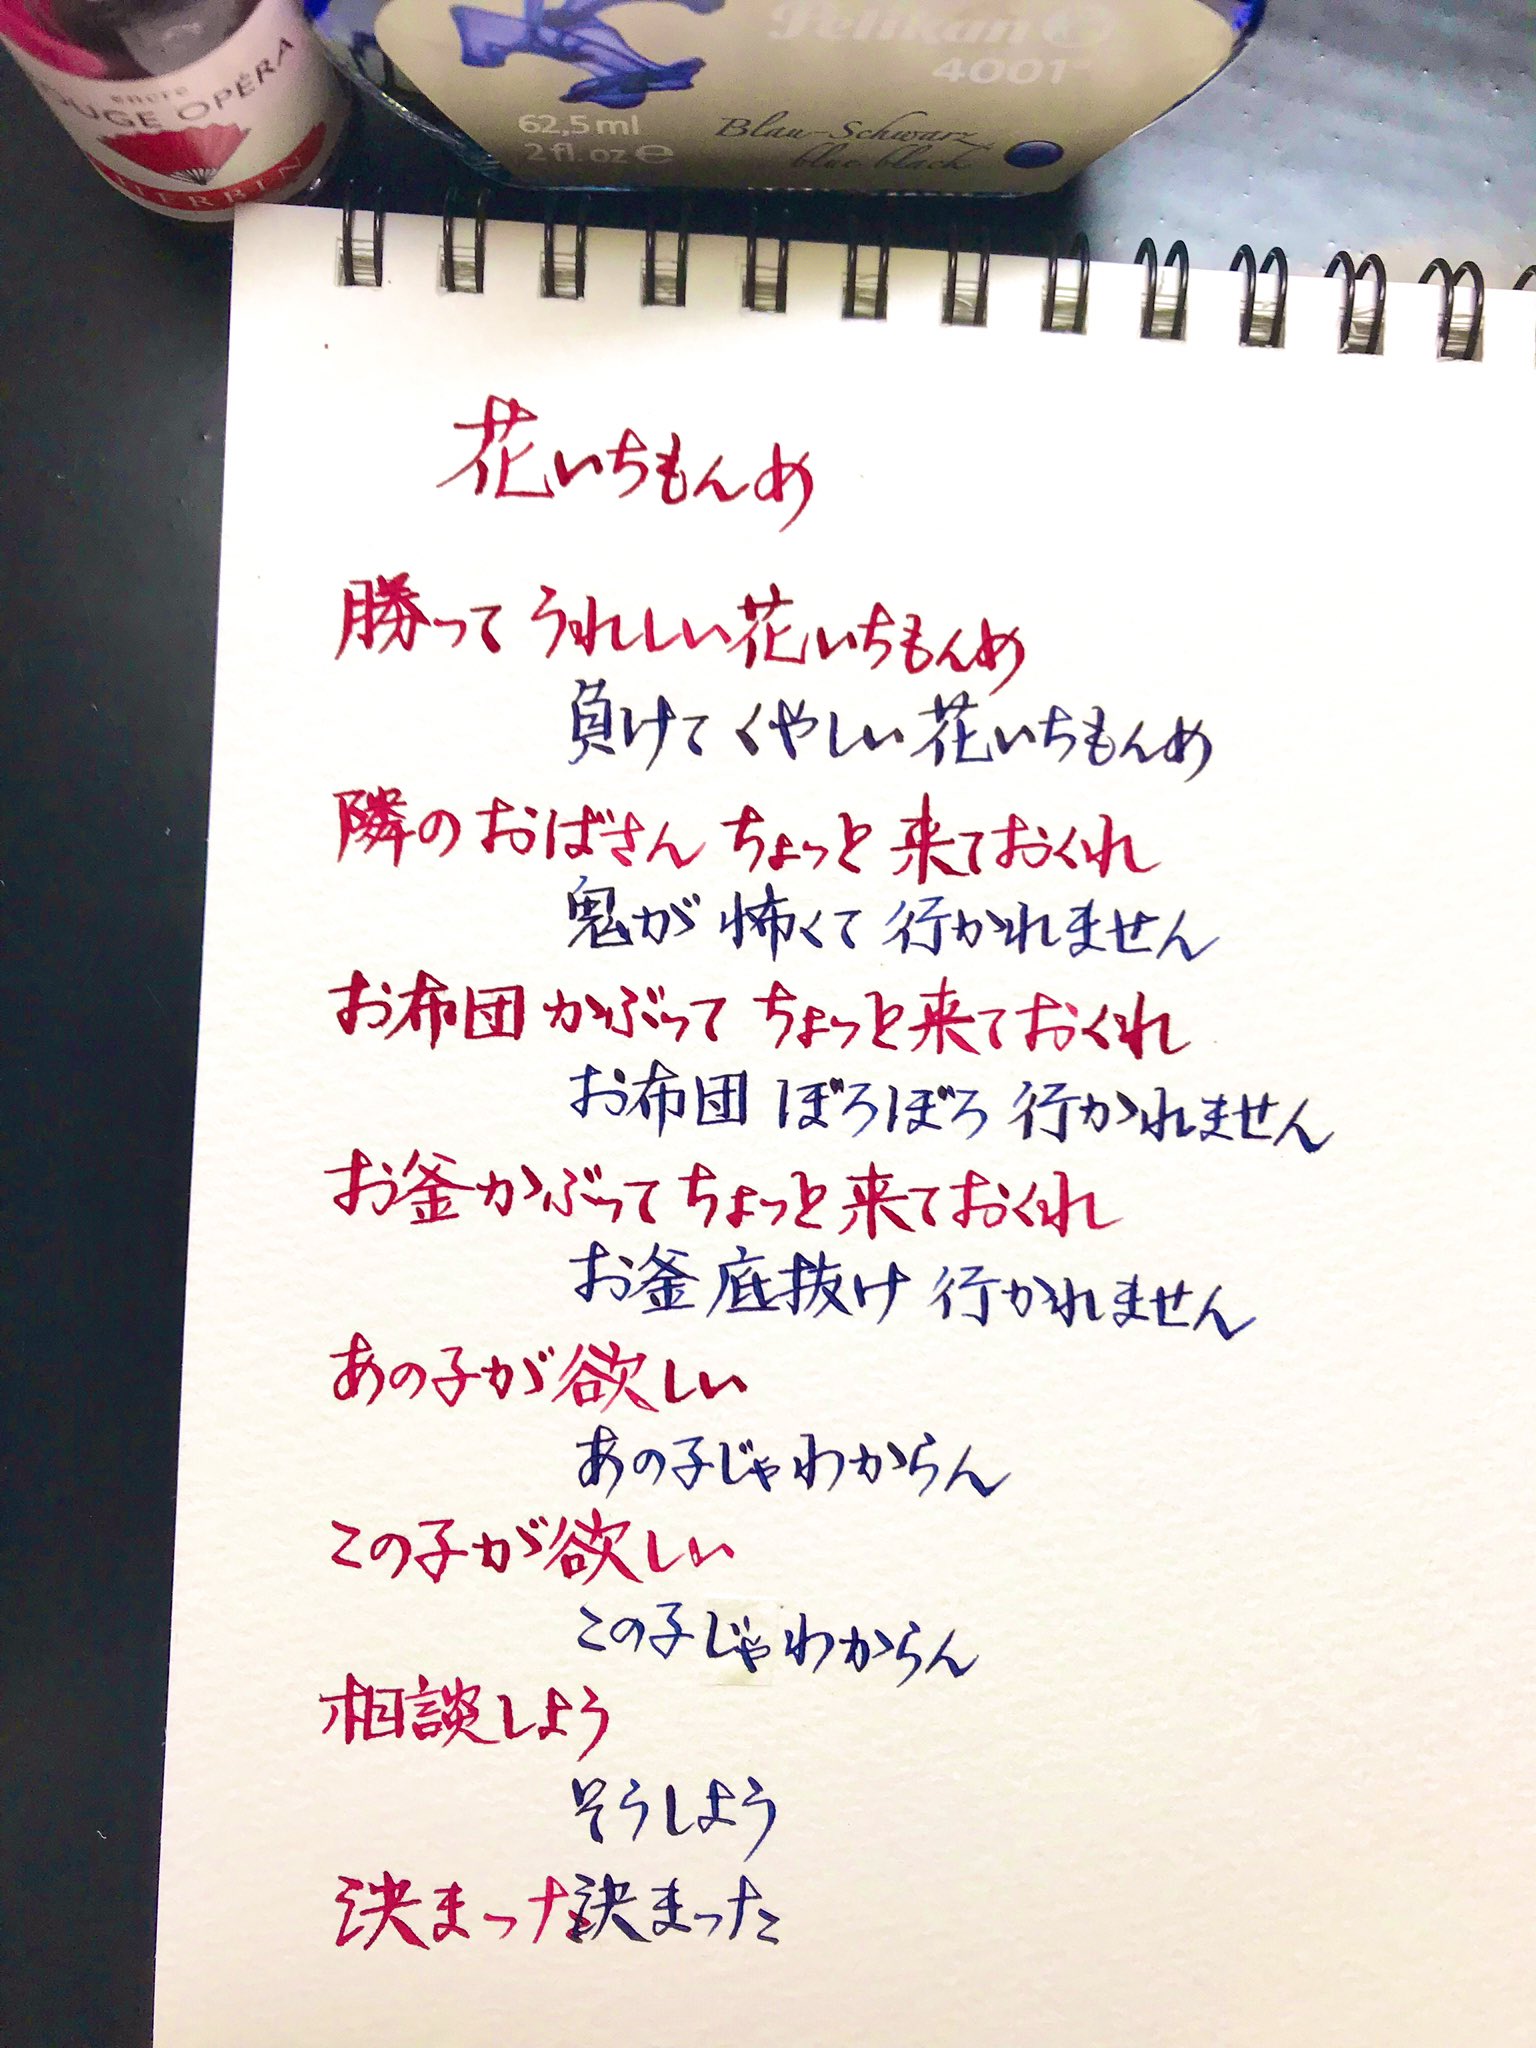 encre
ROUGE OPÉRA
HERBIN
Pelikan
4001
62,5 ml
2 fl. oz e
Blau-Schwarz
blue-black
花いちもんめ
勝って うれしい花いちもんめ
負けて くやしい花いちもんめ
隣の おばさん ちょっと 来ておくれ
鬼が 怖くて 行かれません
お布団 かぶって ちょっと来ておくれ
お布団 ぼろぼろ 行かれません
お釜かぶって ちょっと来ておくれ
お釜底抜け 行かれません
あの子が欲しい
あの子じゃわからん
この子が欲しい
この子じゃわからん
相談しよう
そうしよう
決まった決まった